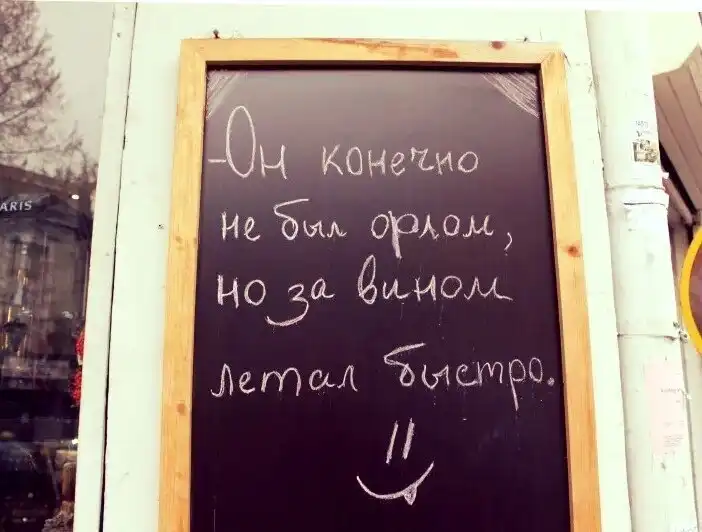 ARIS
-Он конечно
не был орлом,
но за вином
летал быстро.